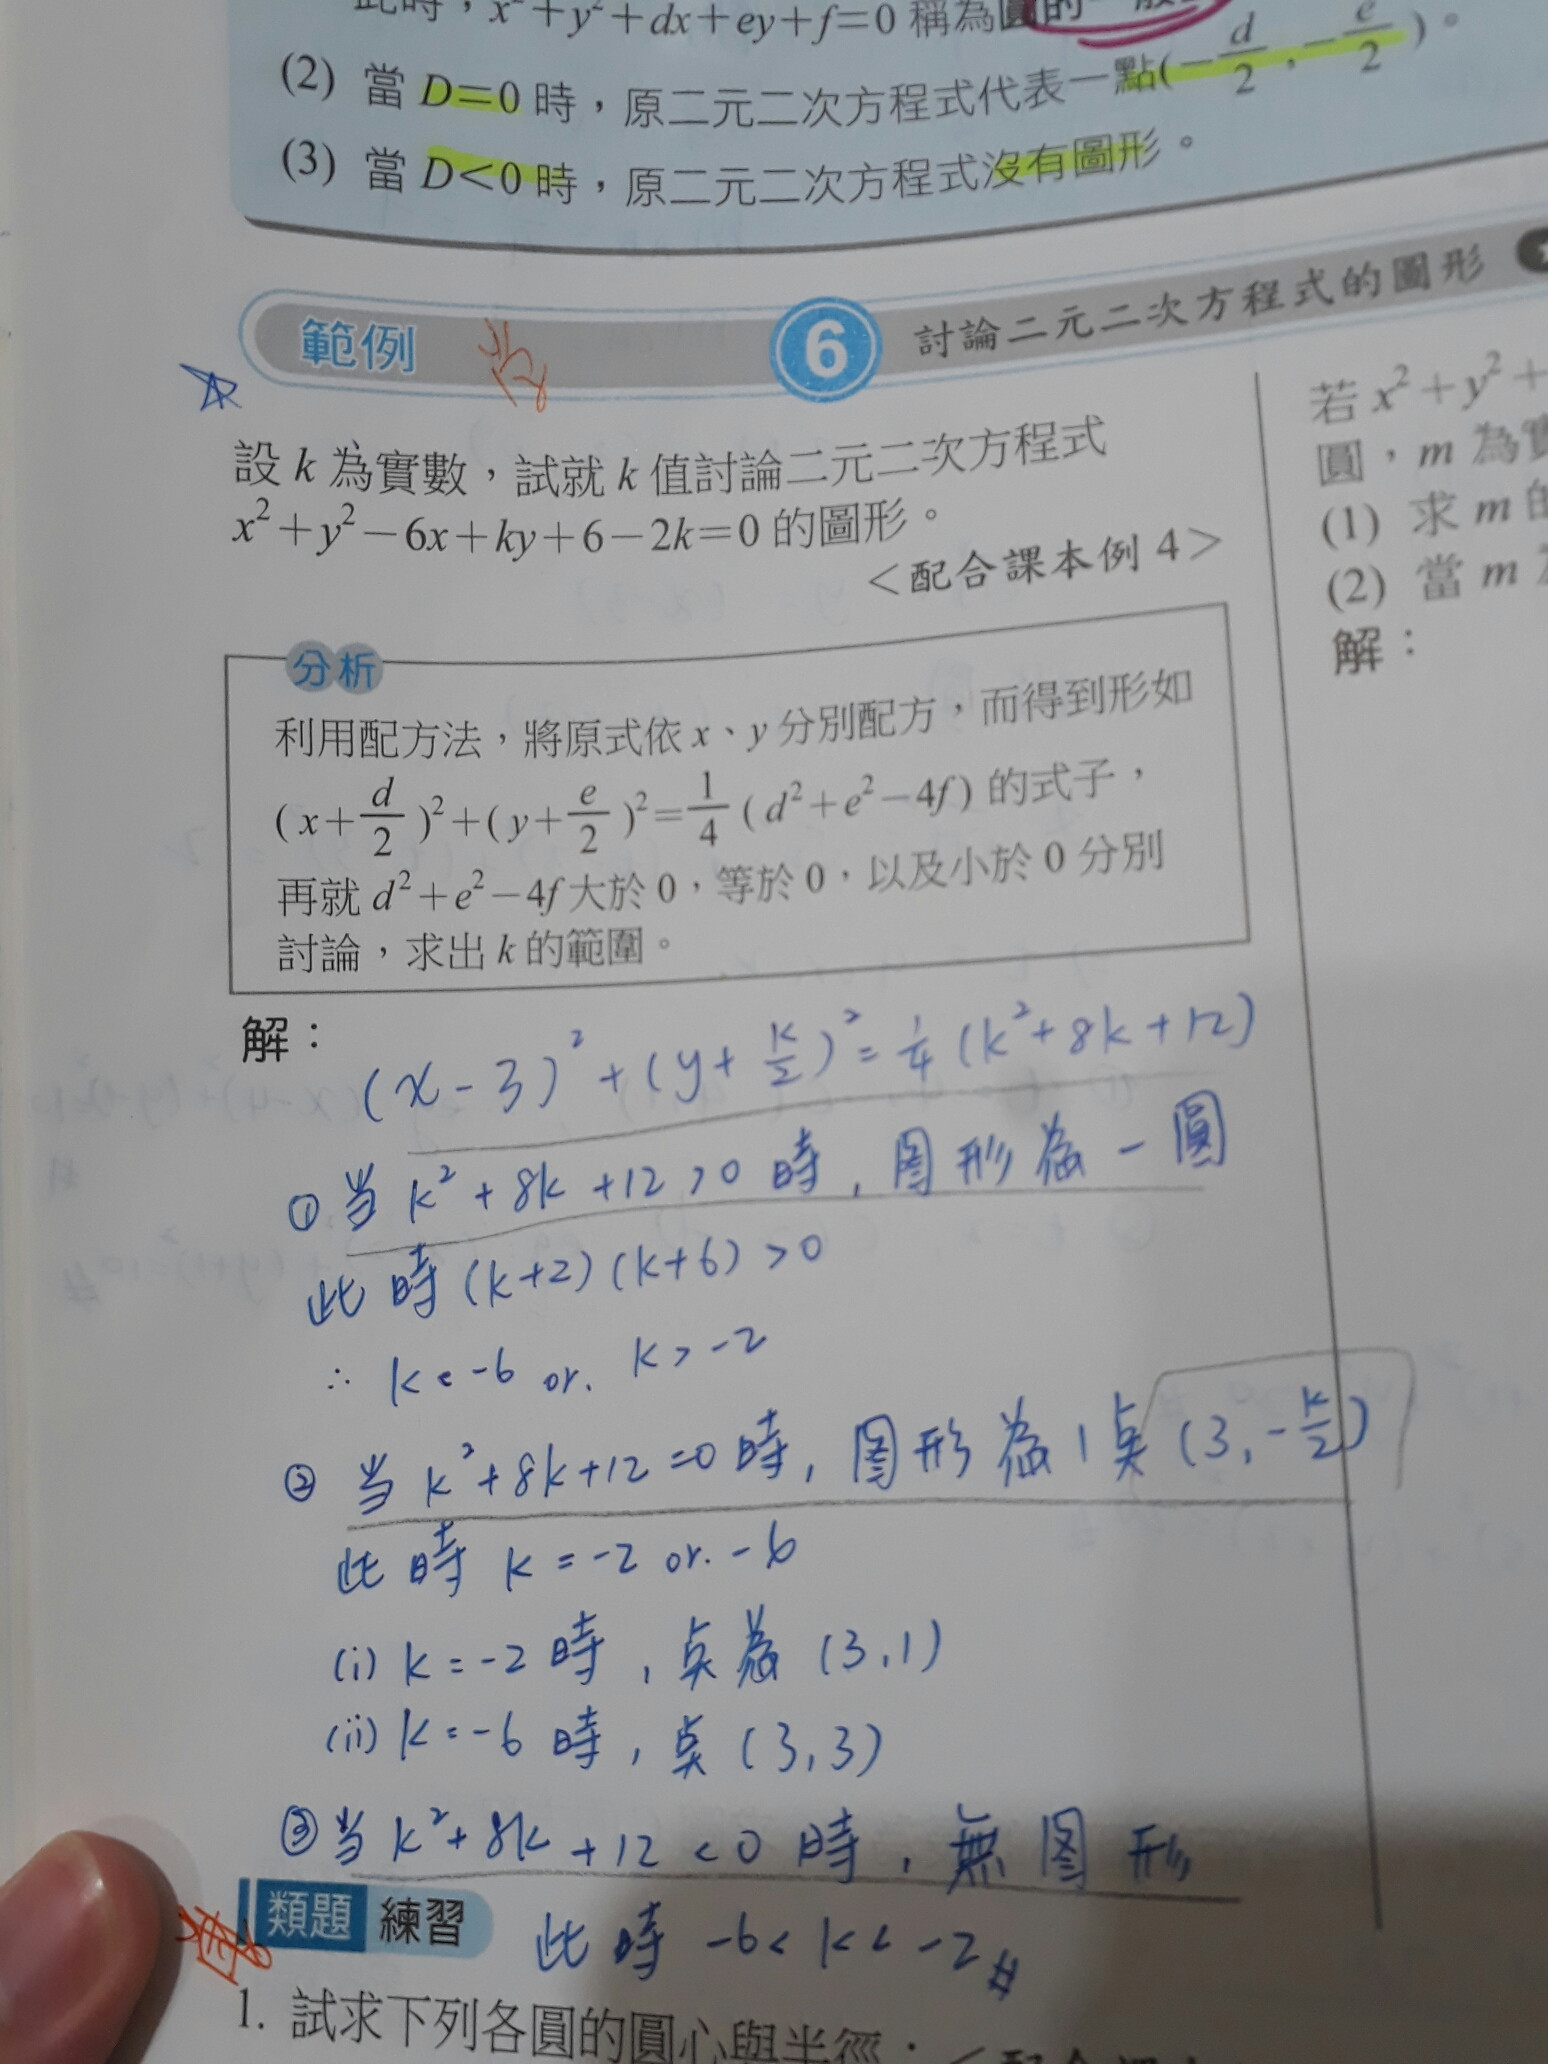 此時，x²+y²+dx+ey+f=0 稱為圓的一般
(2) 當 D=0 時，原二元二次方程式代表一點(-d/2,-e/2)。
(3) 當 D<0 時，原二元二次方程式沒有圖形。
範例 6 討論二元二次方程式的圖形
設 k 為實數，試就 k 值討論二元二次方程式
x²+y²-6x+ky+6-2k=0 的圖形。
<配合課本例 4>
分析
利用配方法，將原式依 x、y 分別配方，而得到形如
(x+d/2)²+(y+e/2)²=1/4(d²+e²-4f) 的式子，
再就 d²+e²-4f 大於 0，等於 0，以及小於 0 分別
討論，求出 k 的範圍。
解：
(x-3)²+(y+k/2)²=1/4(k²+8k+12)
① 当 k²+8k+12>0 時, 图形為一圓
此時 (k+2)(k+6)>0
∴ k<-6 or. k>-2
② 当 k²+8k+12=0 時, 图形為1点(3,-k/2)
此時 k=-2 or. -6
(i) k=-2 時, 点為 (3,1)
(ii) k=-6 時, 点 (3,3)
③ 当 k²+8k+12<0 時, 無图形
此時 -6<k<-2 #
類題 練習
1. 試求下列各圓的圓心與半徑：<配合課
若 x²+y²+
圓，m 為實
(1) 求 m 的
(2) 當 m
解：